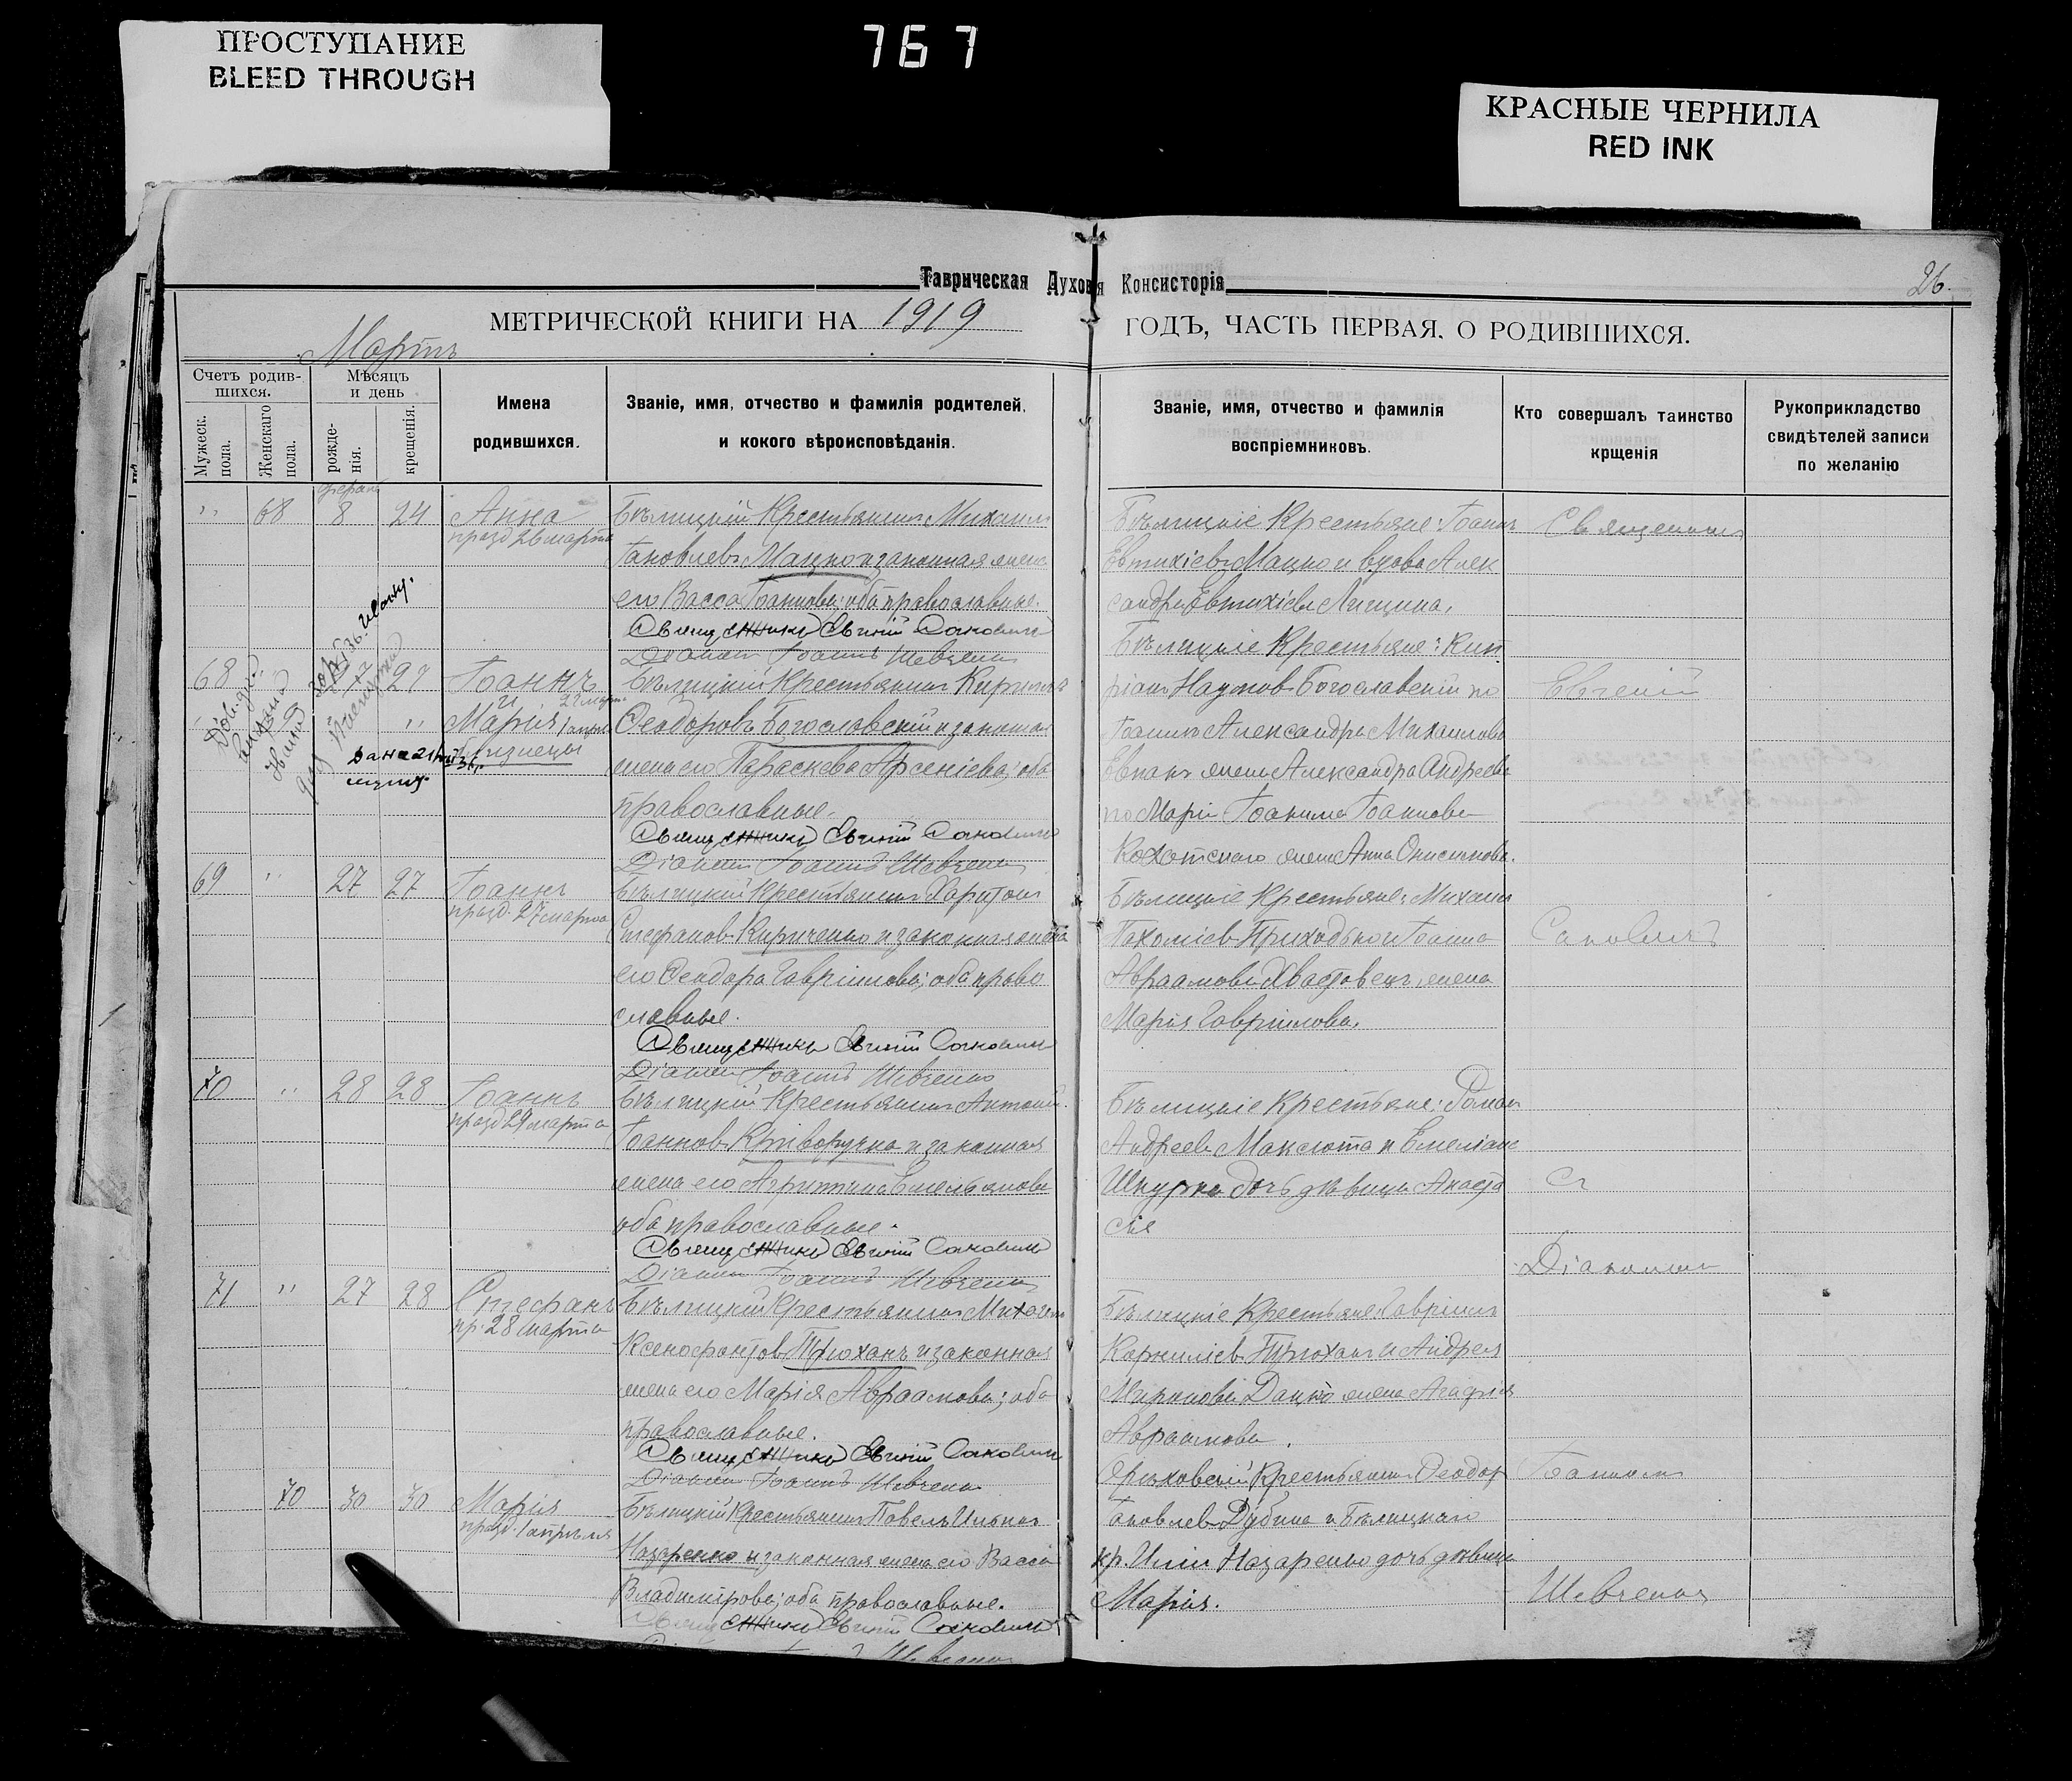 ПРОСТУПАНИЕ
BLEED THROUGH
767
КРАСНЫЕ ЧЕРНИЛА
RED INK
Таврическая Духовая Консисторія
26.
МЕТРИЧЕСКОЙ КНИГИ НА 1919 ГОДЪ, ЧАСТЬ ПЕРВАЯ, О РОДИВШИХСЯ.
Мартъ
Счетъ родив-
шихся.
Мужеск.
пола.
Женскаго
пола.
Мѣсяцъ
и день
рожде-
нія.
крещенія.
Имена
родившихся.
Званіе, имя, отчество и фамилія родителей,
и кокого вѣроисповѣданія.
Званіе, имя, отчество и фамилія
воспріемниковъ.
Кто совершалъ таинство
крщенія
Рукоприкладство
свидѣтелей записи
по желанію
" 68 8 24 Анна
празд 26 марта
Бѣлицкій Крестьянинъ Михаилъ
Іаковлевъ Мацко и законная жена
его Васса Іоаннова; оба православные.
Священникъ Евгеній Саковичъ
Діаконъ Іоаннъ Шевченко
Бѣлицкіе Крестьяне: Іоаннъ
Евтихіевъ Мацко и вдова Алек
сандра Евтихіева
Священникъ
68 27 Іоаннъ
и
Марія 1 апр.
близнецы
Бѣлицкій Крестьянинъ Кириллъ
Феодоровъ Богославскій и законная
жена его Параскева Арсеніева; оба
православные.
Священникъ Евгеній Саковичъ
Діаконъ Іоаннъ Шевченко
Бѣлицкіе Крестьяне: Кип
ріанъ Наумовъ Богославскій по
Іоанну Александра Михаилова
жена Александра Андреева
по Маріи Іоакима Іоаннова
жена Анна Онисимова.
Евгеній
69 " 27 27 Іоаннъ
празд. 27 марта
Бѣлицкій Крестьянинъ Харитонъ
Стефановъ Кириченко и законная жена
его Феодора Гавріилова; оба право
славные.
Священникъ Евгеній Саковичъ
Діаконъ Іоаннъ Шевченко
Бѣлицкіе Крестьяне: Михаилъ
Пахоміевъ Приходько и Іоанна
Авраамова Хвастовецъ жена
Марія Гавріилова.
Саковичъ
70 " 28 28 Іоаннъ
празд 29 марта
Бѣлицкій Крестьянинъ Антоній
Іоанновъ Криворучко и законная
жена его Агрипина Емельянова
оба православные.
Священникъ Евгеній Саковичъ
Діаконъ Іоаннъ Шевченко
Бѣлицкіе Крестьяне: Романъ
Андреевъ Максюта и Емеліана
Шкурка дочь дѣвица Анаста
сія
Съ
Діакономъ
71 " 27 28 Стефанъ
пр. 28 марта
Бѣлицкій Крестьянинъ Михаилъ
Ксенофонтовъ Трюханъ и законная
жена его Марія Авраамова; оба
православные.
Священникъ Евгеній Саковичъ
Діаконъ Іоаннъ Шевченко
Бѣлицкіе Крестьяне: Гавріилъ
Корниліевъ Трюханъ и Андрея
Миронова Дацко жена Агафія
Авраамова.
Іоанномъ
70 30 30 Марія
празд. 1 апрѣля
Бѣлицкій Крестьянинъ Павелъ Ильинъ
Назаренко и законная жена его Васса
Владимірова; оба православные.
Священникъ Евгеній Саковичъ
Орѣховскій Крестьянинъ Феодоръ
Іаковлевъ Дубина и Бѣлицкаго
кр. Иліи Назаренко дочь дѣвица
Марія.
Шевченко